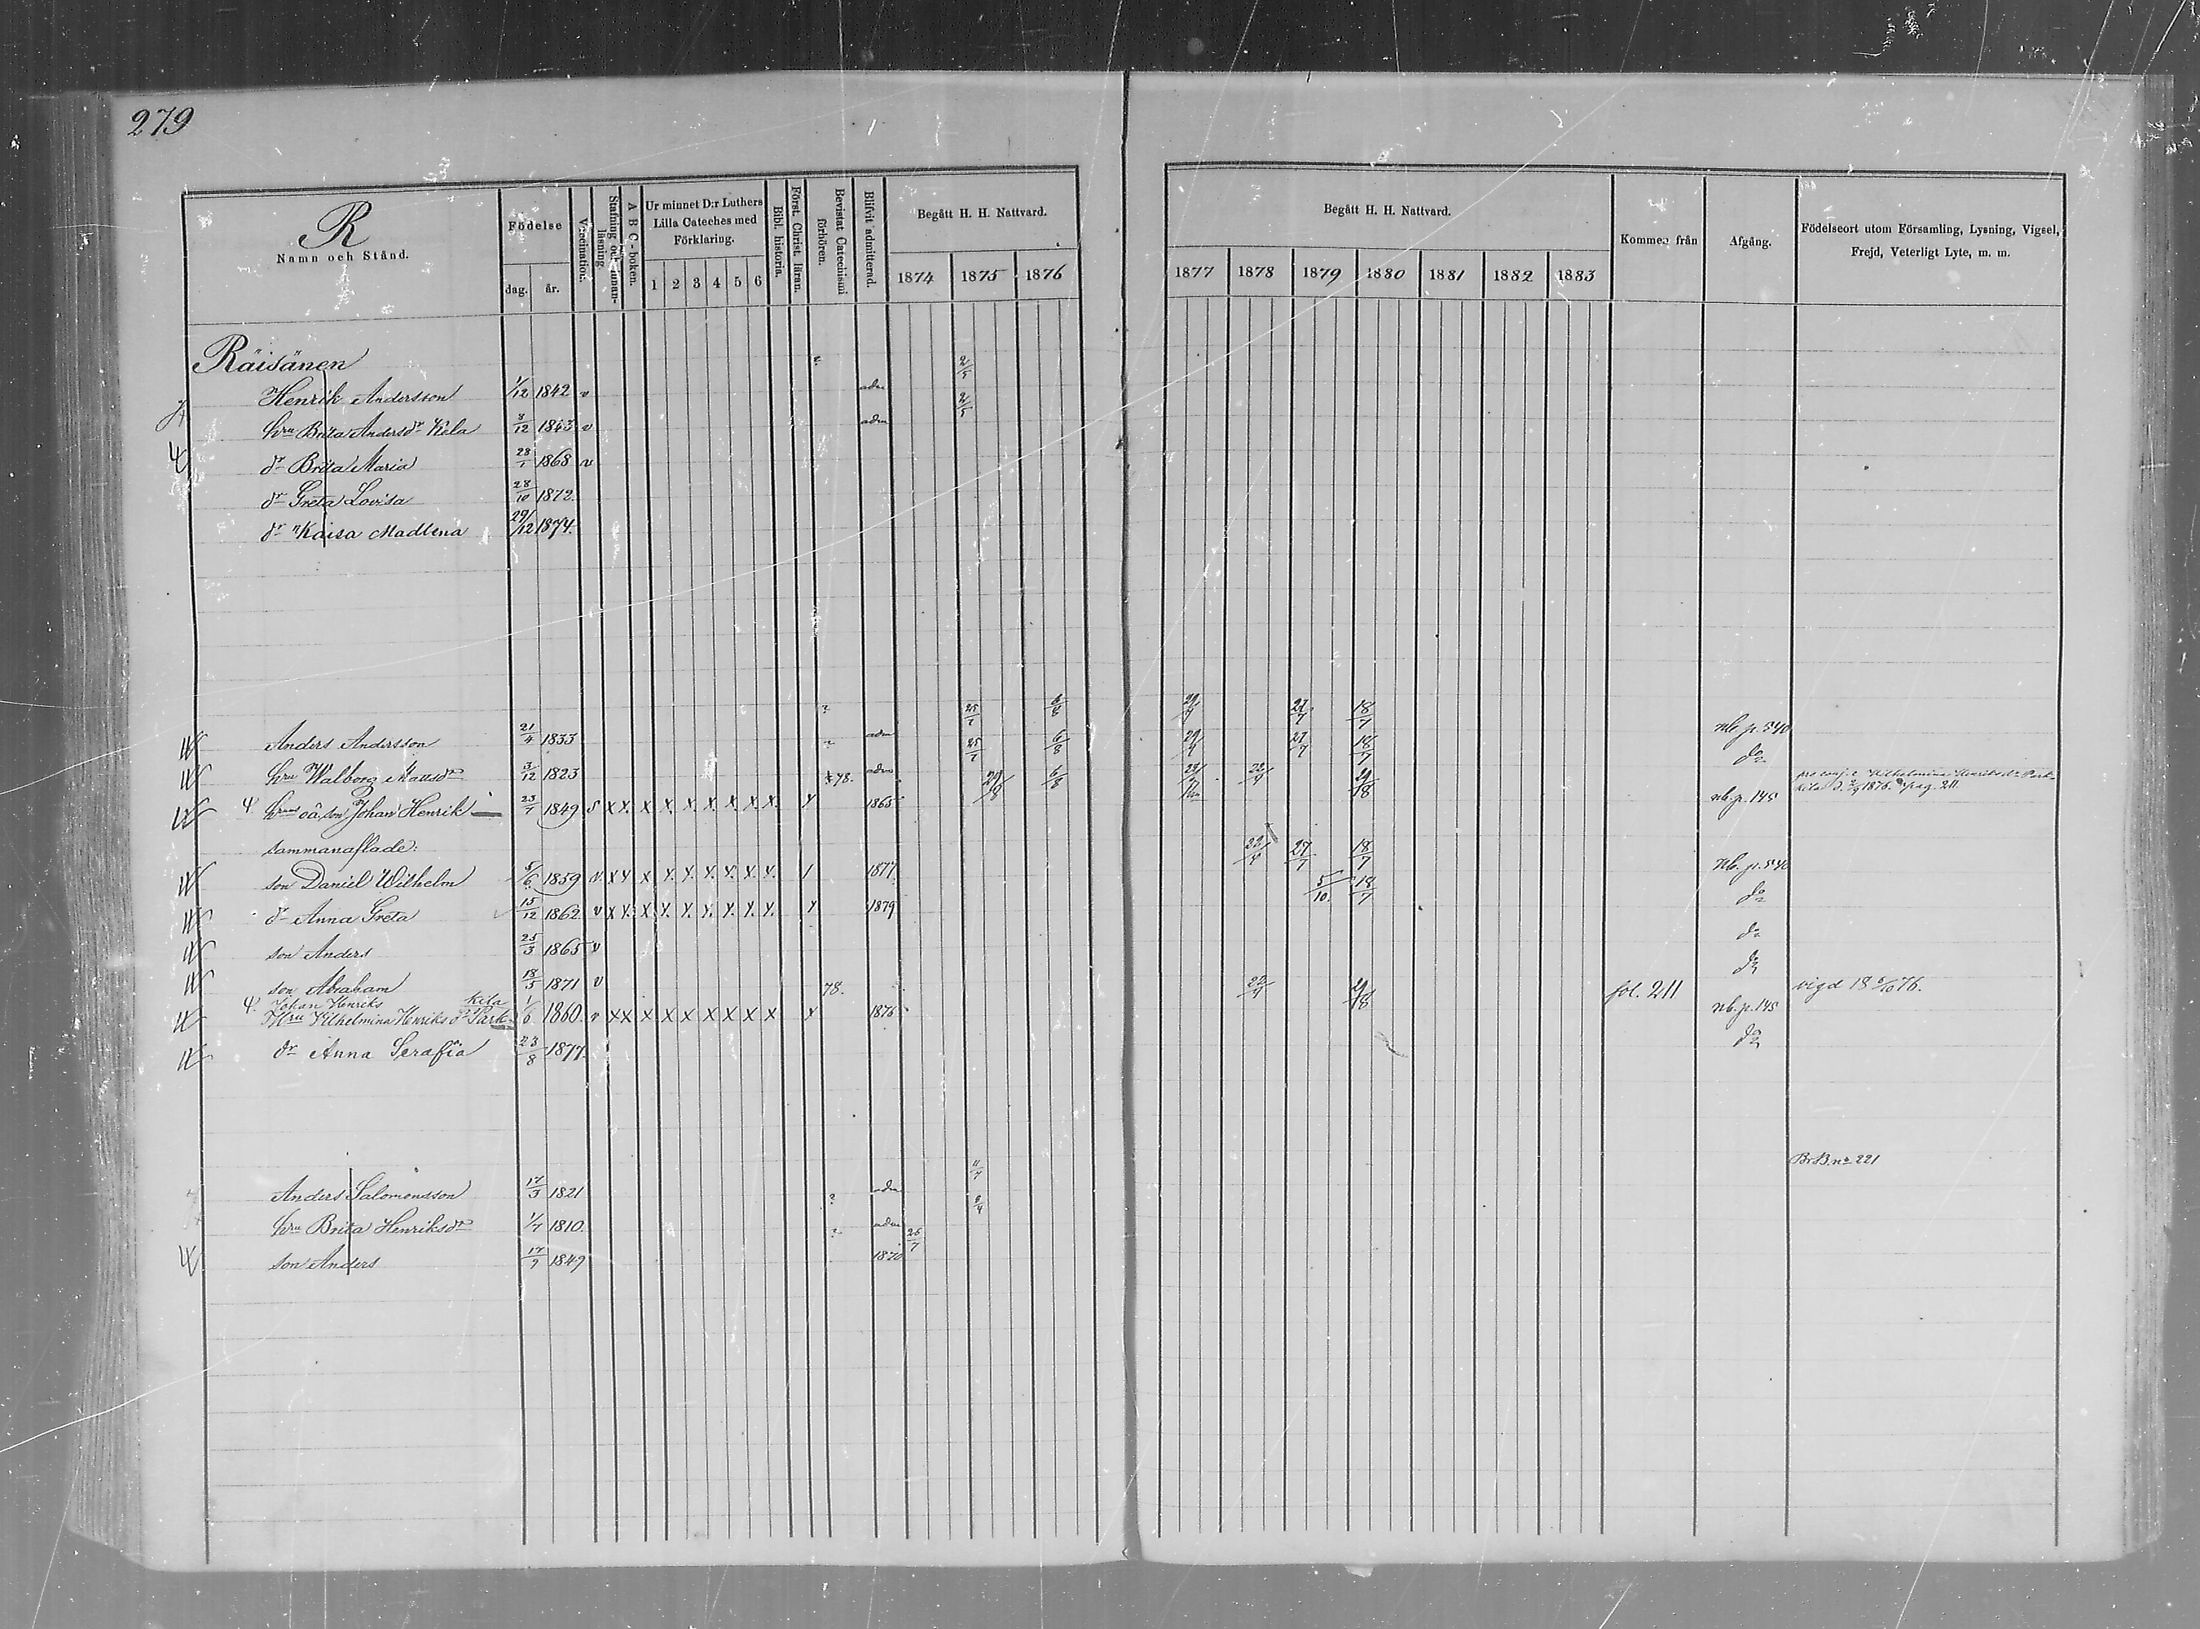 279
R
Namn och Stånd.
Födelse
dag. år.
Vaccination.
Stafning och innanläsning.
A B C-boken.
Ur minnet D:r Luthers Lilla Cateches med Förklaring.
1 2 3 4 5 6
Bibl. historia.
Först. Christ. läran.
Bevistat Catechismi förhören.
Blifvit admitterad.
Begått H. H. Nattvard.
1874 1875 1876
Begått H. H. Nattvard.
1877 1878 1879 1880 1881 1882 1883
Kommen från
Afgång.
Födelseort utom Församling, Lysning, Vigsel, Frejd, Veterligt Lyte, m. m.
Räisänen ? 2/5
Henrik Andersson 1/12 1842 v adm 2/5
hru Brita Andersdr Kela 8/12 1843 v adm
dr Brita Maria 28/1 1868 v
dr Greta Lovisa 28/10 1872.
dr Kaisa Madlena 29/12 1874.
Anders Andersson 21/4 1833 ? adm 25/7 6/8 29/7 27/7 18/7 nb p. 540
hru Walborg Matsdr 3/12 1823 ? adm 25/7 6/8 29/7 27/7 18/7 do
hrus oä son Johan Henrik 23/7 1849 S x x. x x. x. x. x. x. x. x 78. 1865 29/8 6/8 22/9 29/8 nb. p. 145 Wilhelmina Henriksdr Park Kela d. 3/9 1876. pag. 211.
sammanaflade:
son Daniel Wilhelm 5/6 1859 v. x x x x. x. x. x. x. x. 1 1877 22/9 27/7 18/7 Nb. p. 540
dr Anna Greta 15/12 1862 v x x. x. x. x. x. x. x. x. x 1879 5/10 18/7 do
son Anders 25/3 1865 v do
son Abraham 18/5 1871 v do
Johan Henriks Kela
Hru Vilhelmina Henriksdr Park 1/6 1860. v x x x x x x x x x x 78. 1876 22/9 29/8 fol. 211 nb. p. 145 vigd 18 6/10 76.
dr Anna Serafia 23/8 1877. do
Anders Salomonsson 17/3 1821 adm 11/4 BrB. no 221
hru Brita Henriksdr 1/7 1810. ? adm 9/4
son Anders 17/7 1849 ? 1870 26/7